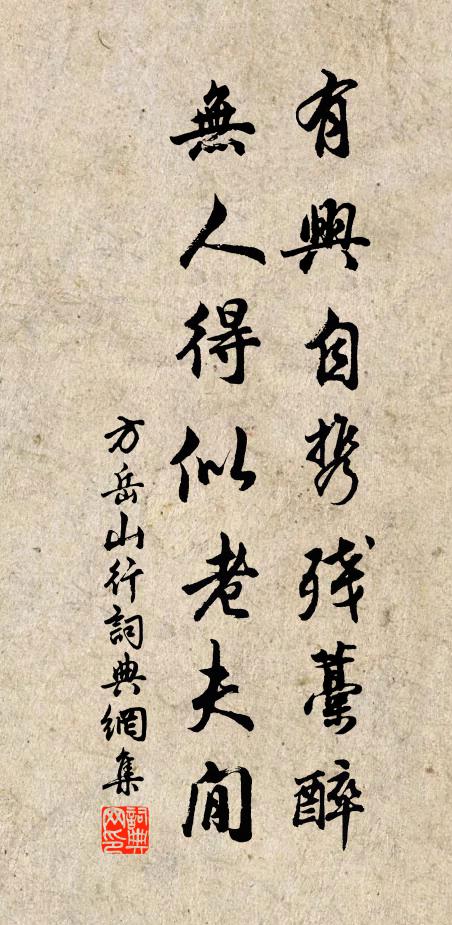 有興自携残藁醉
無人得似老夫閒
方岳山行詞典網集
詞典网印